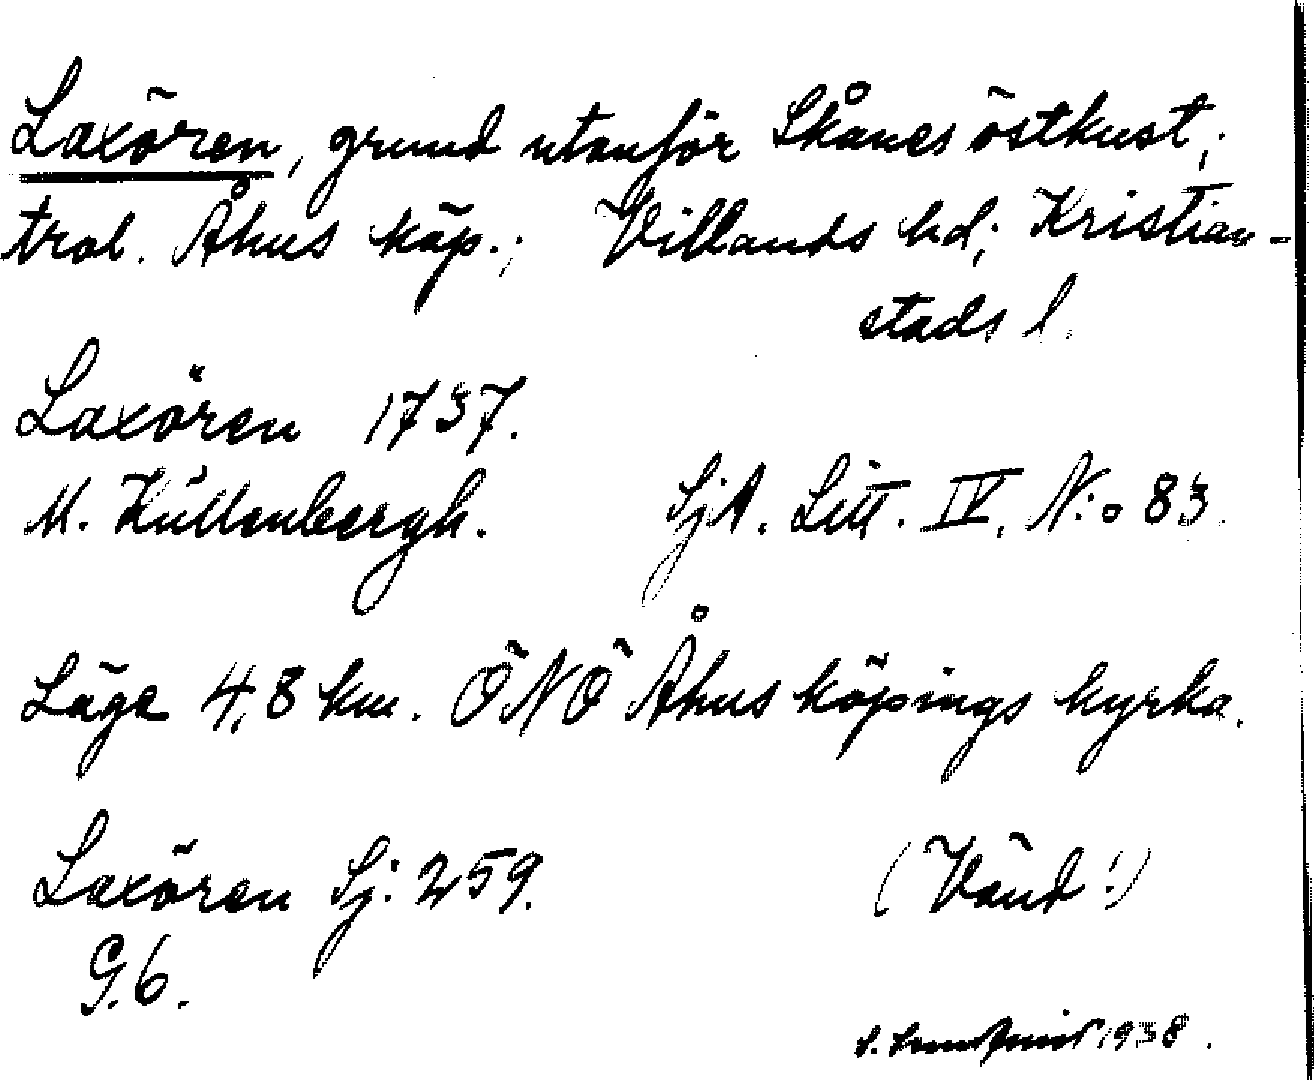 Laxören, grund utanför Skånes östkust;
trol. Åhus köp.; Villands hd; Kristian-
stads l.
Laxören 1737.
M. Küllenbergh. SjA. Litt. IV. N:o 83.
Läge 4,8 km. ÖNÖ Åhus köpings kyrka.
Laxören Sj: 259. (Vänd!)
G.6.
1938.